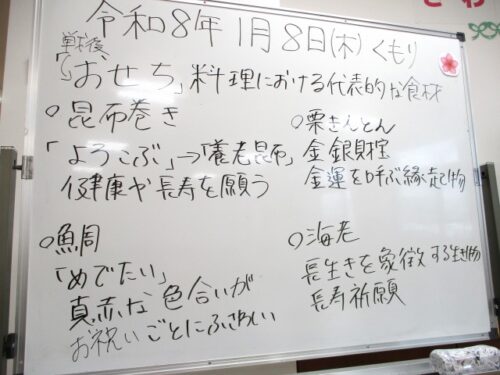 令和8年1月8日(木)くもり
戦後
「おせち」料理における代表的な食材
○昆布巻き
「よろこぶ」→「養老昆布」
健康や長寿を願う
○栗きんとん
金銀財宝
金運を呼ぶ縁起物
○鯛
「めでたい」
真赤な色合いが
お祝いごとにふさわしい
○海老
長生きを象徴する生き物
長寿祈願